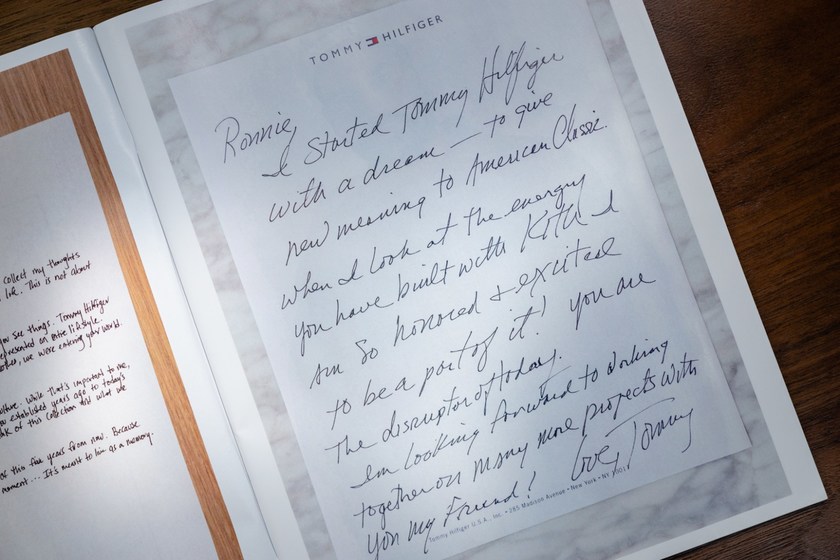 collect my thoughts
life. This is not about
you see things. Tommy Hilfiger
represented an entire lifestyle.
we were entering your world.
culture. While that's important to me,
you established years ago to today's
of this collection and what we
this five years from now. Because
moment... It's meant to live as a memory.
TOMMY HILFIGER
Ronnie,
I Started Tommy Hilfiger
with a dream — to give
new meaning to American Classic.
When I look at the energy
you have built with Kith I
am so honored & excited
to be a part of it! You are
The disruptor of today.
I'm looking forward to working
together on many more projects with
you my Friend! Love, Tommy
Tommy Hilfiger U.S.A., Inc. • 285 Madison Avenue • New York • NY 10017